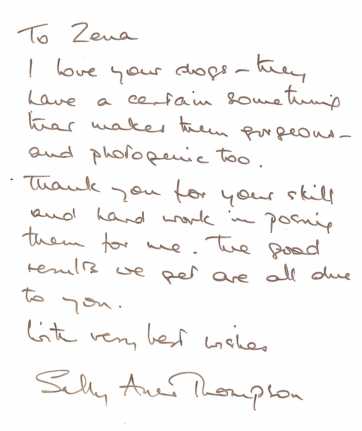 To Zena
I love your dogs – they
have a certain something
that makes them gorgeous –
and photogenic too.
Thank you for your skill
and hard work in posing
them for me. The good
results we get are all due
to you.
With very best wishes
Sally Anne Thompson